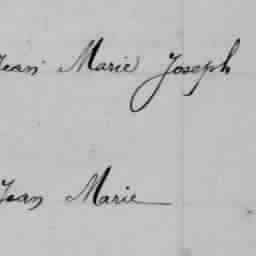 Jean Marie Joseph
Jean Marie